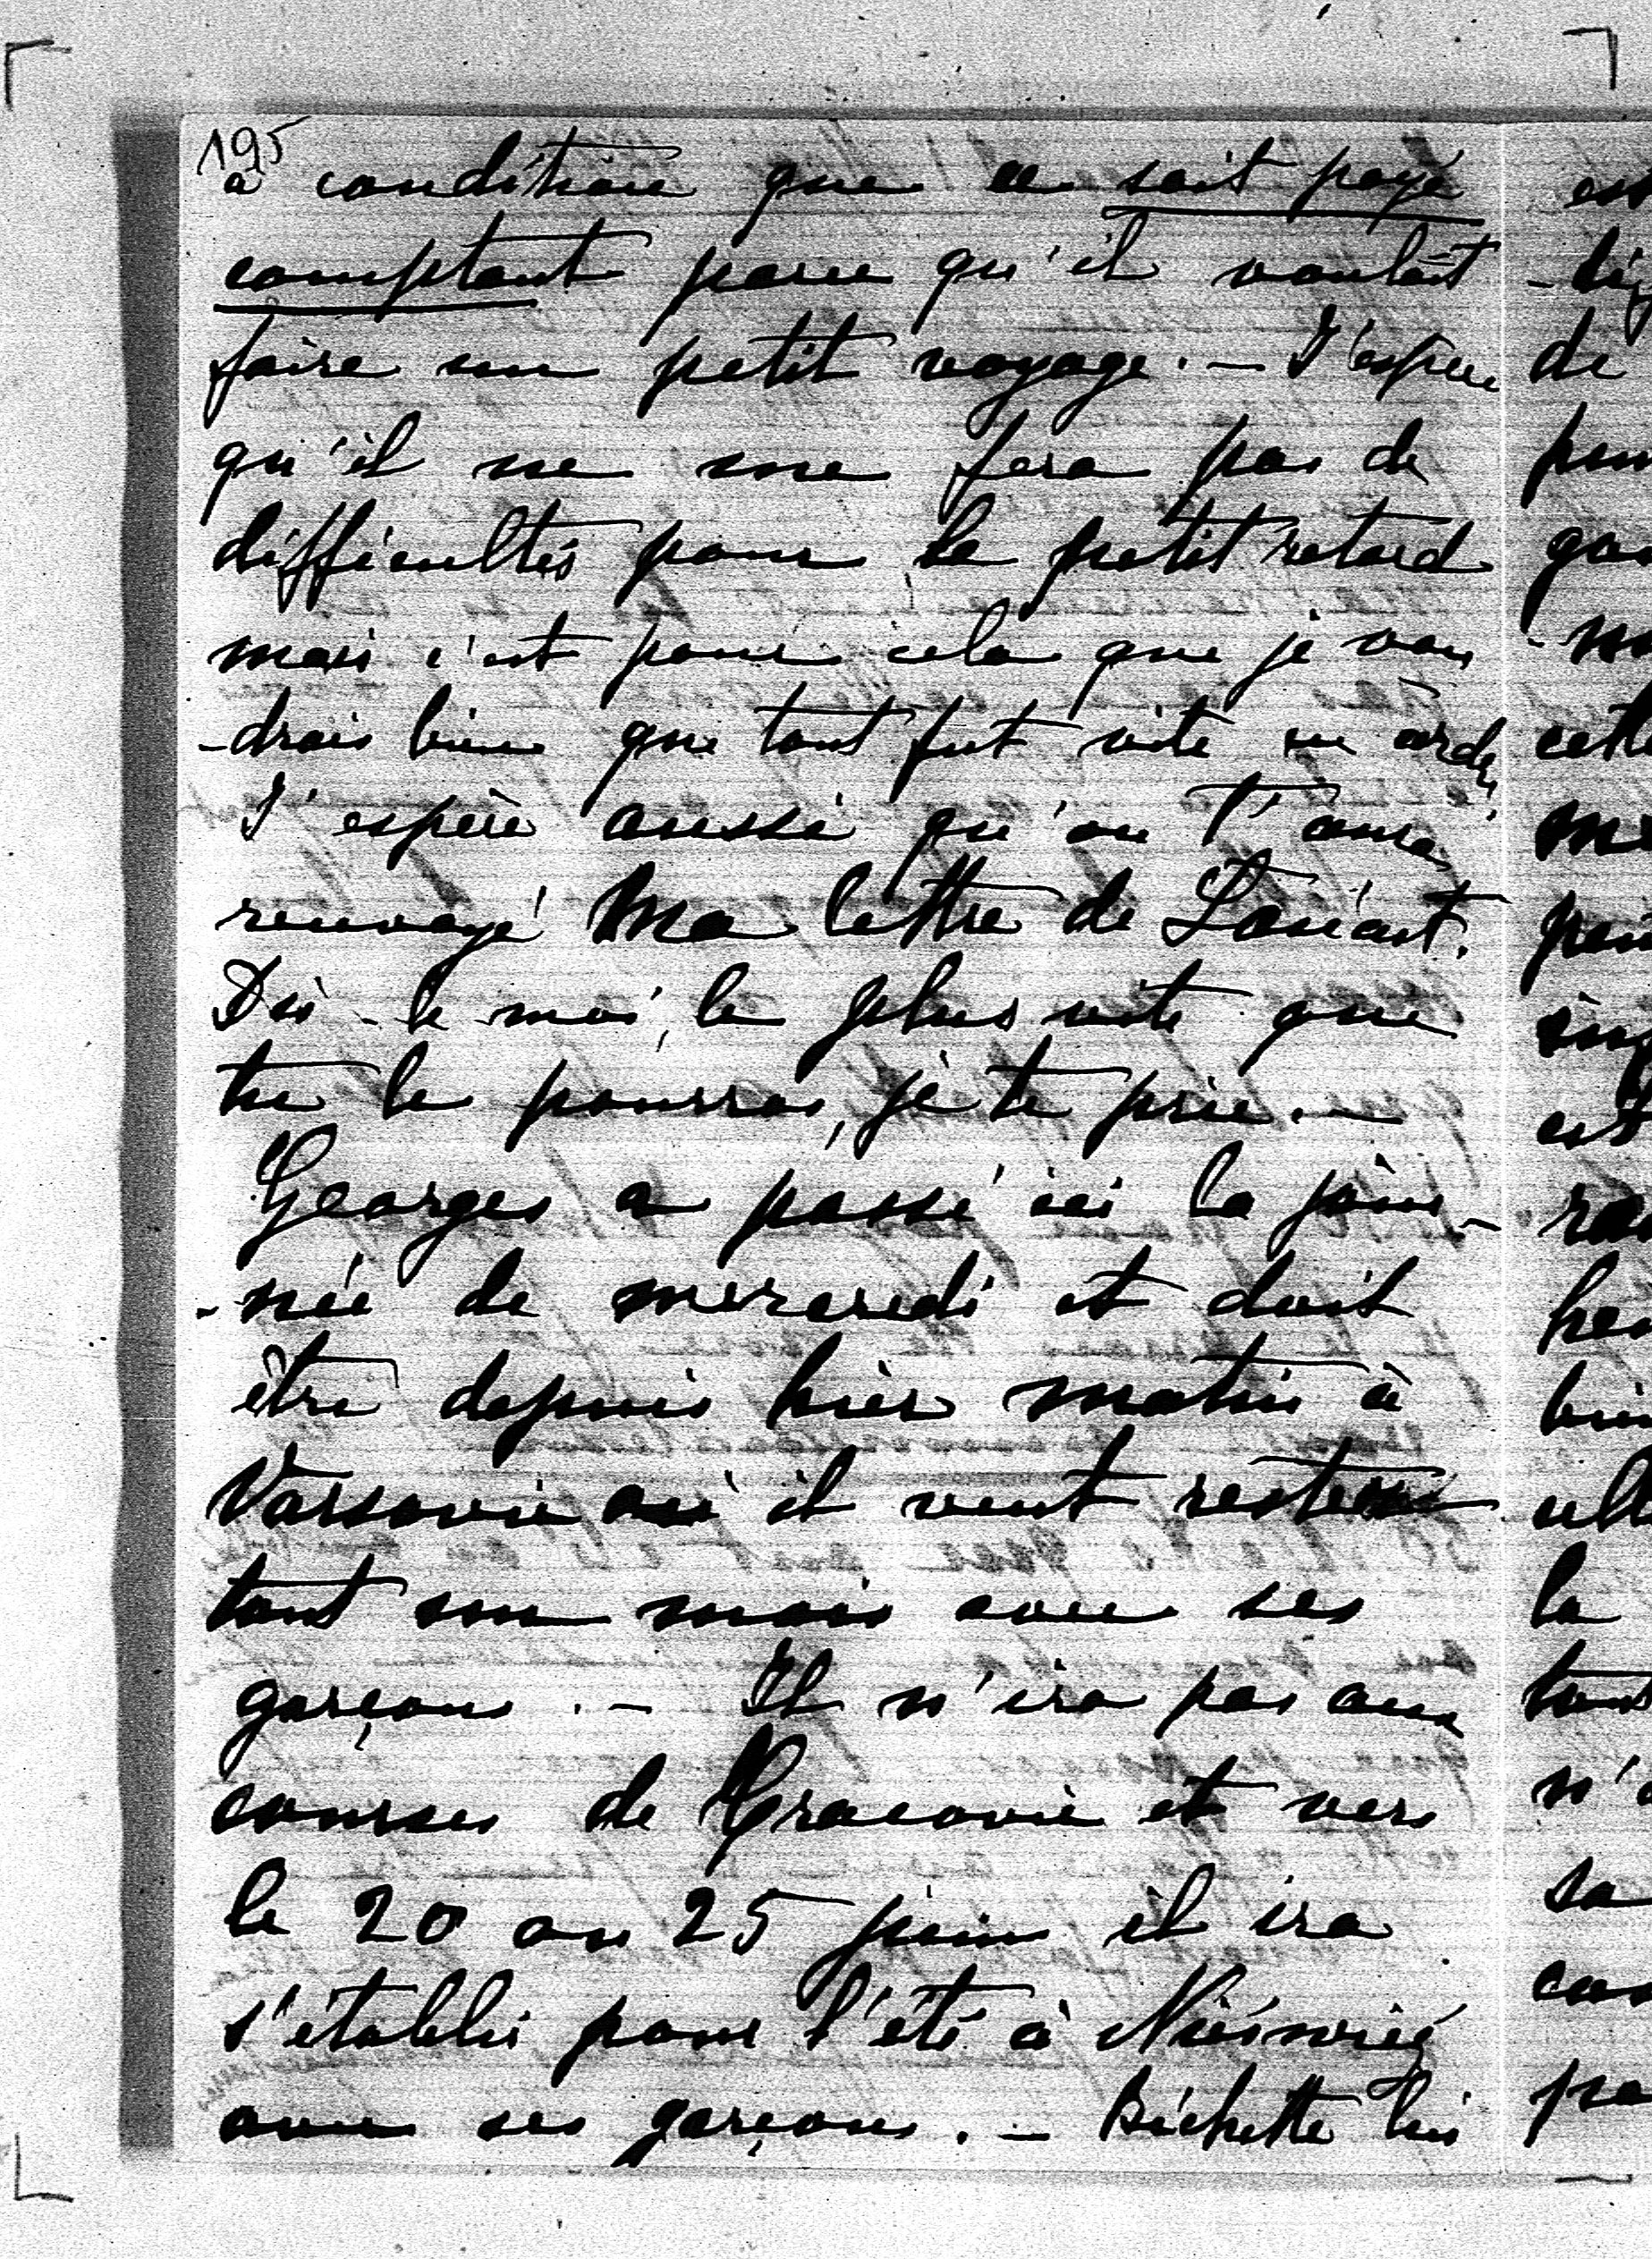 195
à condition que ce soit payé
comptant parce qu'il voulait
faire un petit voyage. — J'espère
qu'il ne me fera pas de
difficultés pour le petit retard
mais c'est pour cela que je vou
-drais bien que tout fut vite en ordre
J'espère aussi qu'on t'aura
renvoyé ma lettre de Łańcut.
Dis-le moi, le plus vite que
tu le pourras, je te prie. —
Georges a passé ici la jour-
-née de mercredi et doit
être depuis hier matin à
Varsovie où il veut rester
tout son mois avec ses
garçons. — Il n'ira pas aux
courses de Cracovie et vers
le 20 ou 25 juin il ira
s'établir pour l'été à
avec ses garçons. — Bichette lui